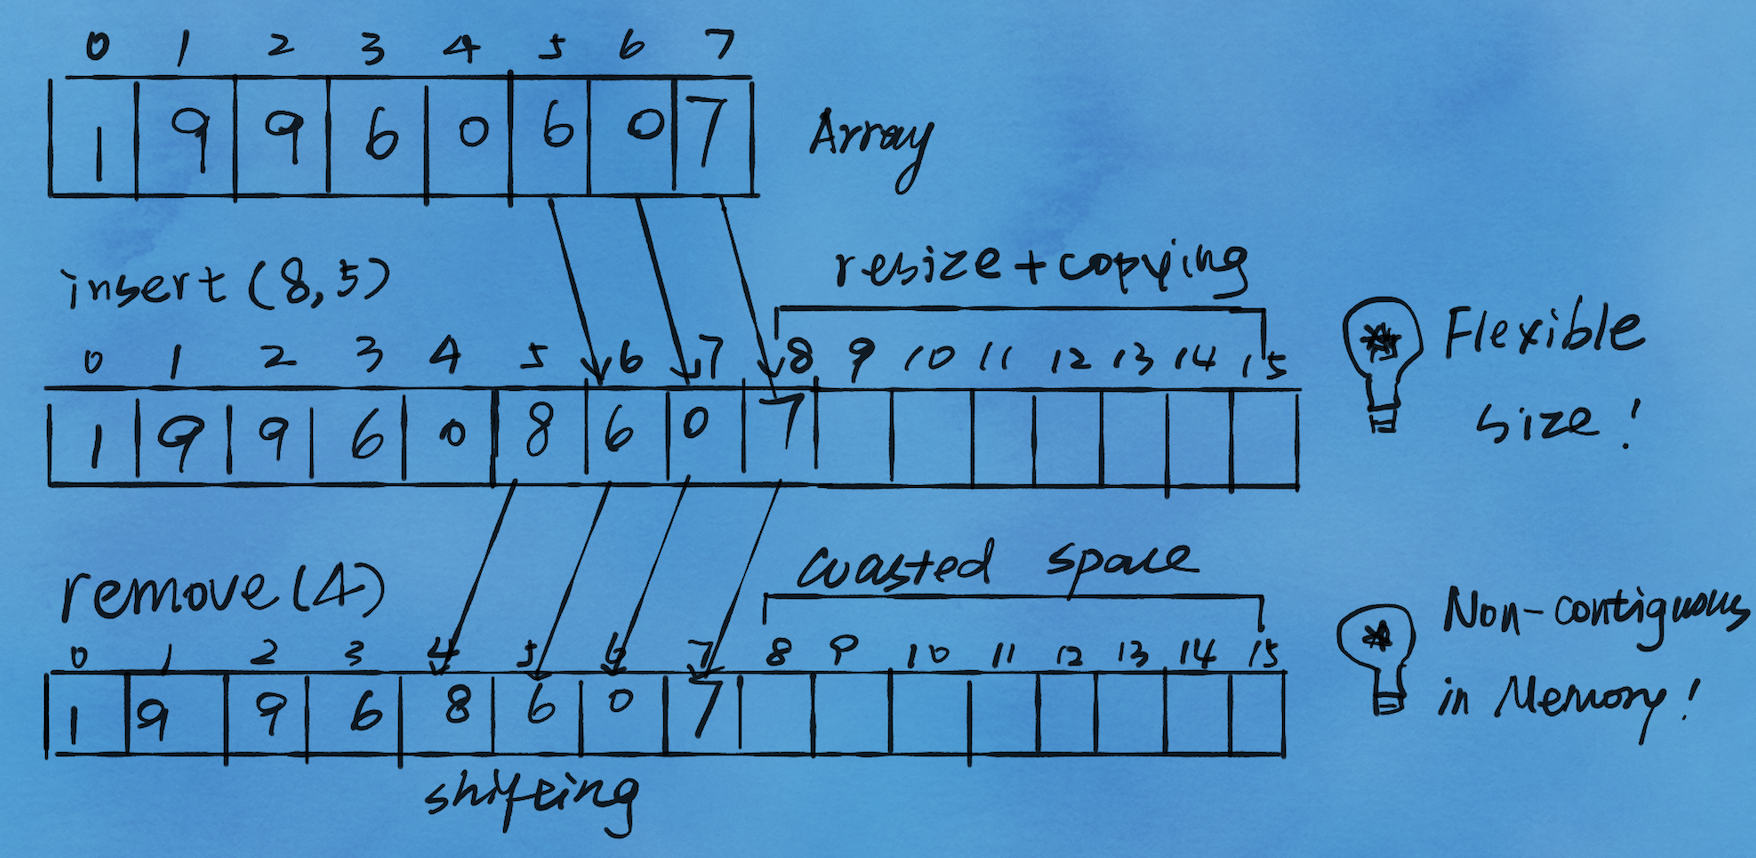 0 1 2 3 4 5 6 7
1 9 9 6 0 6 0 7
Array
insert (8,5)
resize + copying
0 1 2 3 4 5 6 7 8 9 10 11 12 13 14 15
1 9 9 6 0 8 6 0 7
Flexible
size!
remove (4)
wasted space
0 1 2 3 4 5 6 7 8 9 10 11 12 13 14 15
1 9 9 6 8 6 0 7
Non-contiguous
in Memory!
shifting